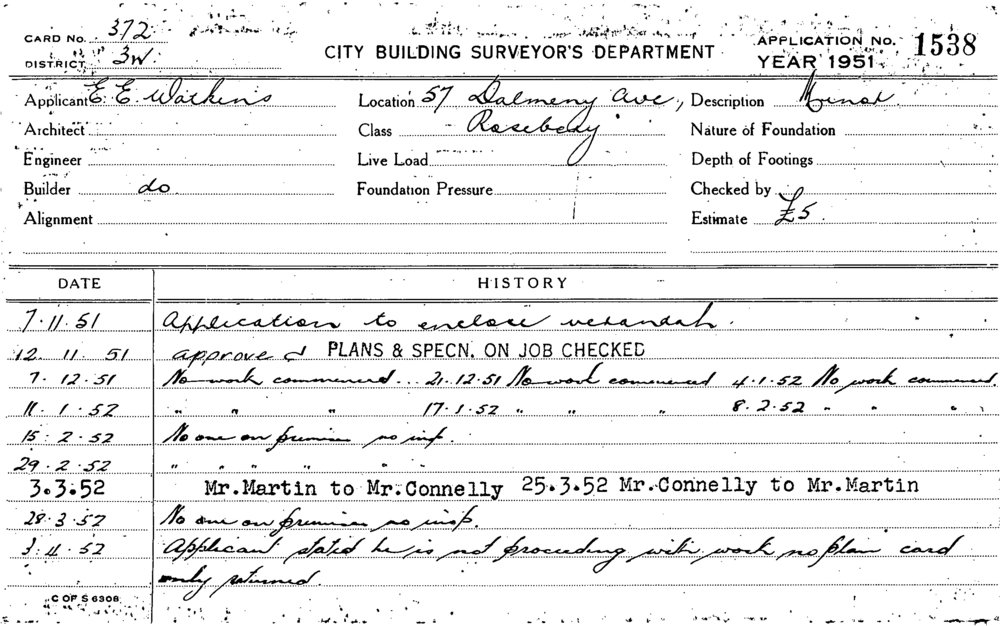 CARD No. 372
DISTRICT 3W.
CITY BUILDING SURVEYOR'S DEPARTMENT
APPLICATION No. 1538
YEAR 1951
Applicant E. E. Watkins Location 57 Dalmeny Ave., Description Minor
Architect Class Rosebery Nature of Foundation
Engineer Live Load Depth of Footings
Builder do Foundation Pressure Checked by
Alignment Estimate £5
DATE HISTORY
7.11.51 Application to enclose verandah.
12.11.51 approved PLANS & SPECN. ON JOB CHECKED
7.12.51 No work commenced... 21.12.51 No work commenced 4.1.52 No work commenced.
11.1.52 " " " 17.1.52 " " " 8.2.52 " " "
15.2.52 No one on premises no insp.
29.2.52 " " " " " "
3.3.52 Mr.Martin to Mr.Connelly 25.3.52 Mr.Connelly to Mr.Martin
28.3.52 No one on premises no insp.
3.4.52 Applicant stated he is not proceeding with work no plan card
only returned.
C OF S 6306